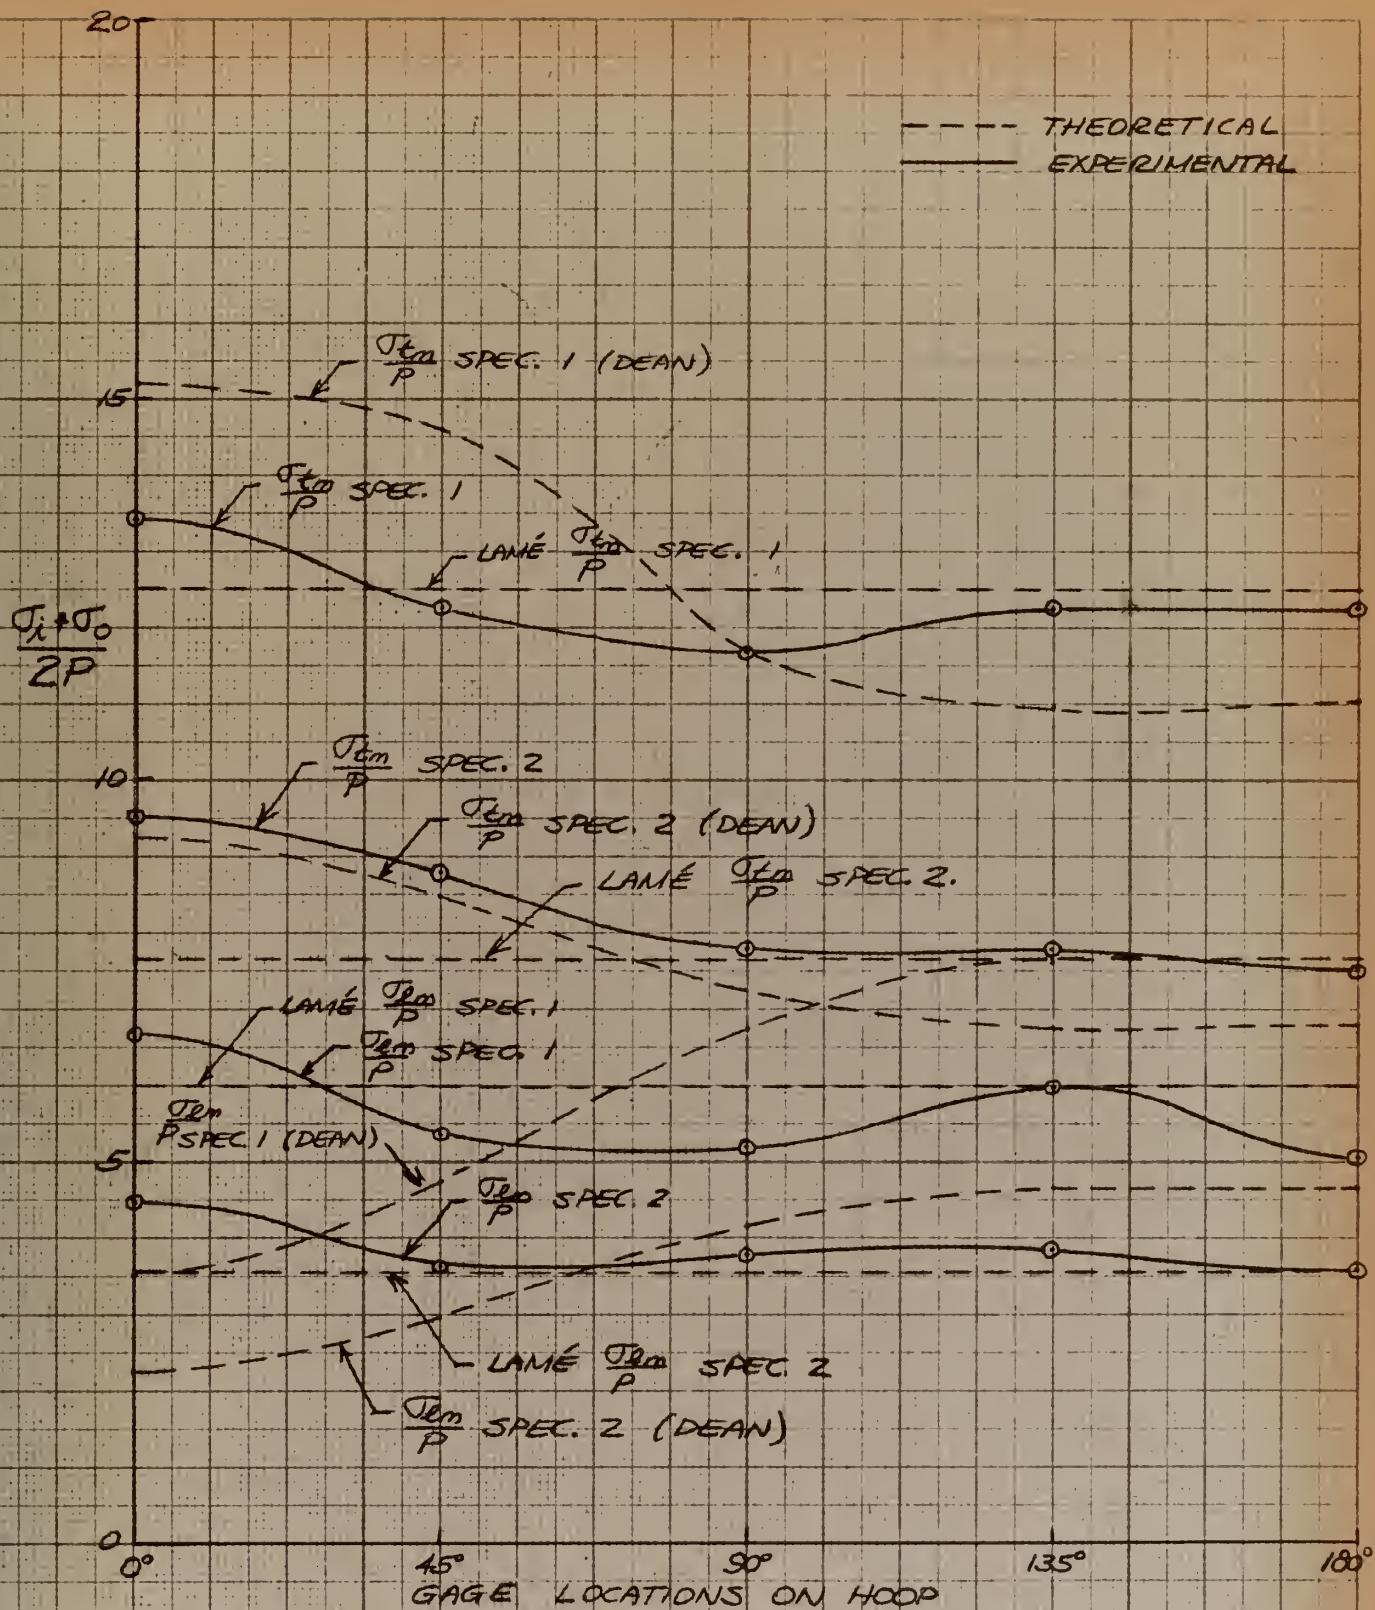 20
--- THEORETICAL
— EXPERIMENTAL
σtm/P SPEC. 1 (DEAN)
15
σtm/P SPEC. 1
LAMÉ σtm/P SPEC. 1
σi+σo/2P
σtm/P SPEC. 2
10
σtm/P SPEC. 2 (DEAN)
LAMÉ σtm/P SPEC. 2.
LAMÉ σlm/P SPEC. 1
σlm/P SPEC. 1
σlm/P SPEC. 1 (DEAN)
5
σlm/P SPEC. 2
LAMÉ σlm/P SPEC. 2
σlm/P SPEC. 2 (DEAN)
0
0° 45° 90° 135° 180°
GAGE LOCATIONS ON HOOP